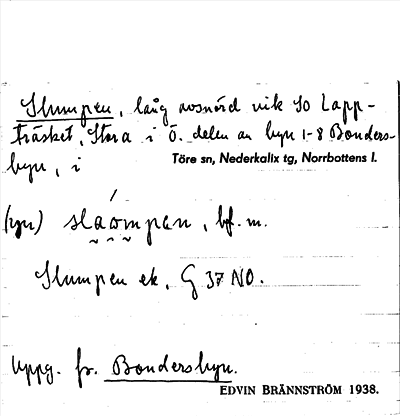 Slumpen, lång osnörd vik SO Lapp-
träsket, Stora i Ö. delen av byn 1-8 Bonders-
byn, i
Töre sn, Nederkalix tg, Norrbottens l.
(yn) slaòmpen, bf. m.
Slumpen ek. G 37 NO.
Uppg. fr. Bondersbyn.
EDVIN BRÄNNSTRÖM 1938.